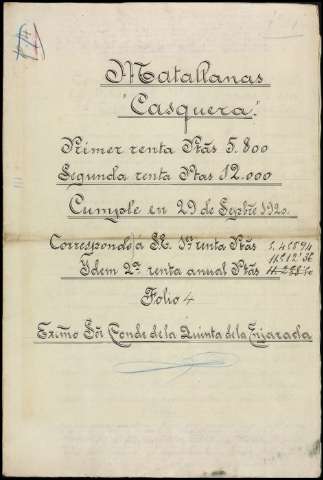 Matallanas
"Casquera".
Primer renta Ptās 5.800
Segunda renta Ptas 12.000
Cumple en 29 de Sepbre 1920.
Corresponde á S.E. 1ª renta Ptās
Ydem 2ª renta anual Ptās
Folio 4
Exīmo Sōr Conde de la Quinta de la Enjarada